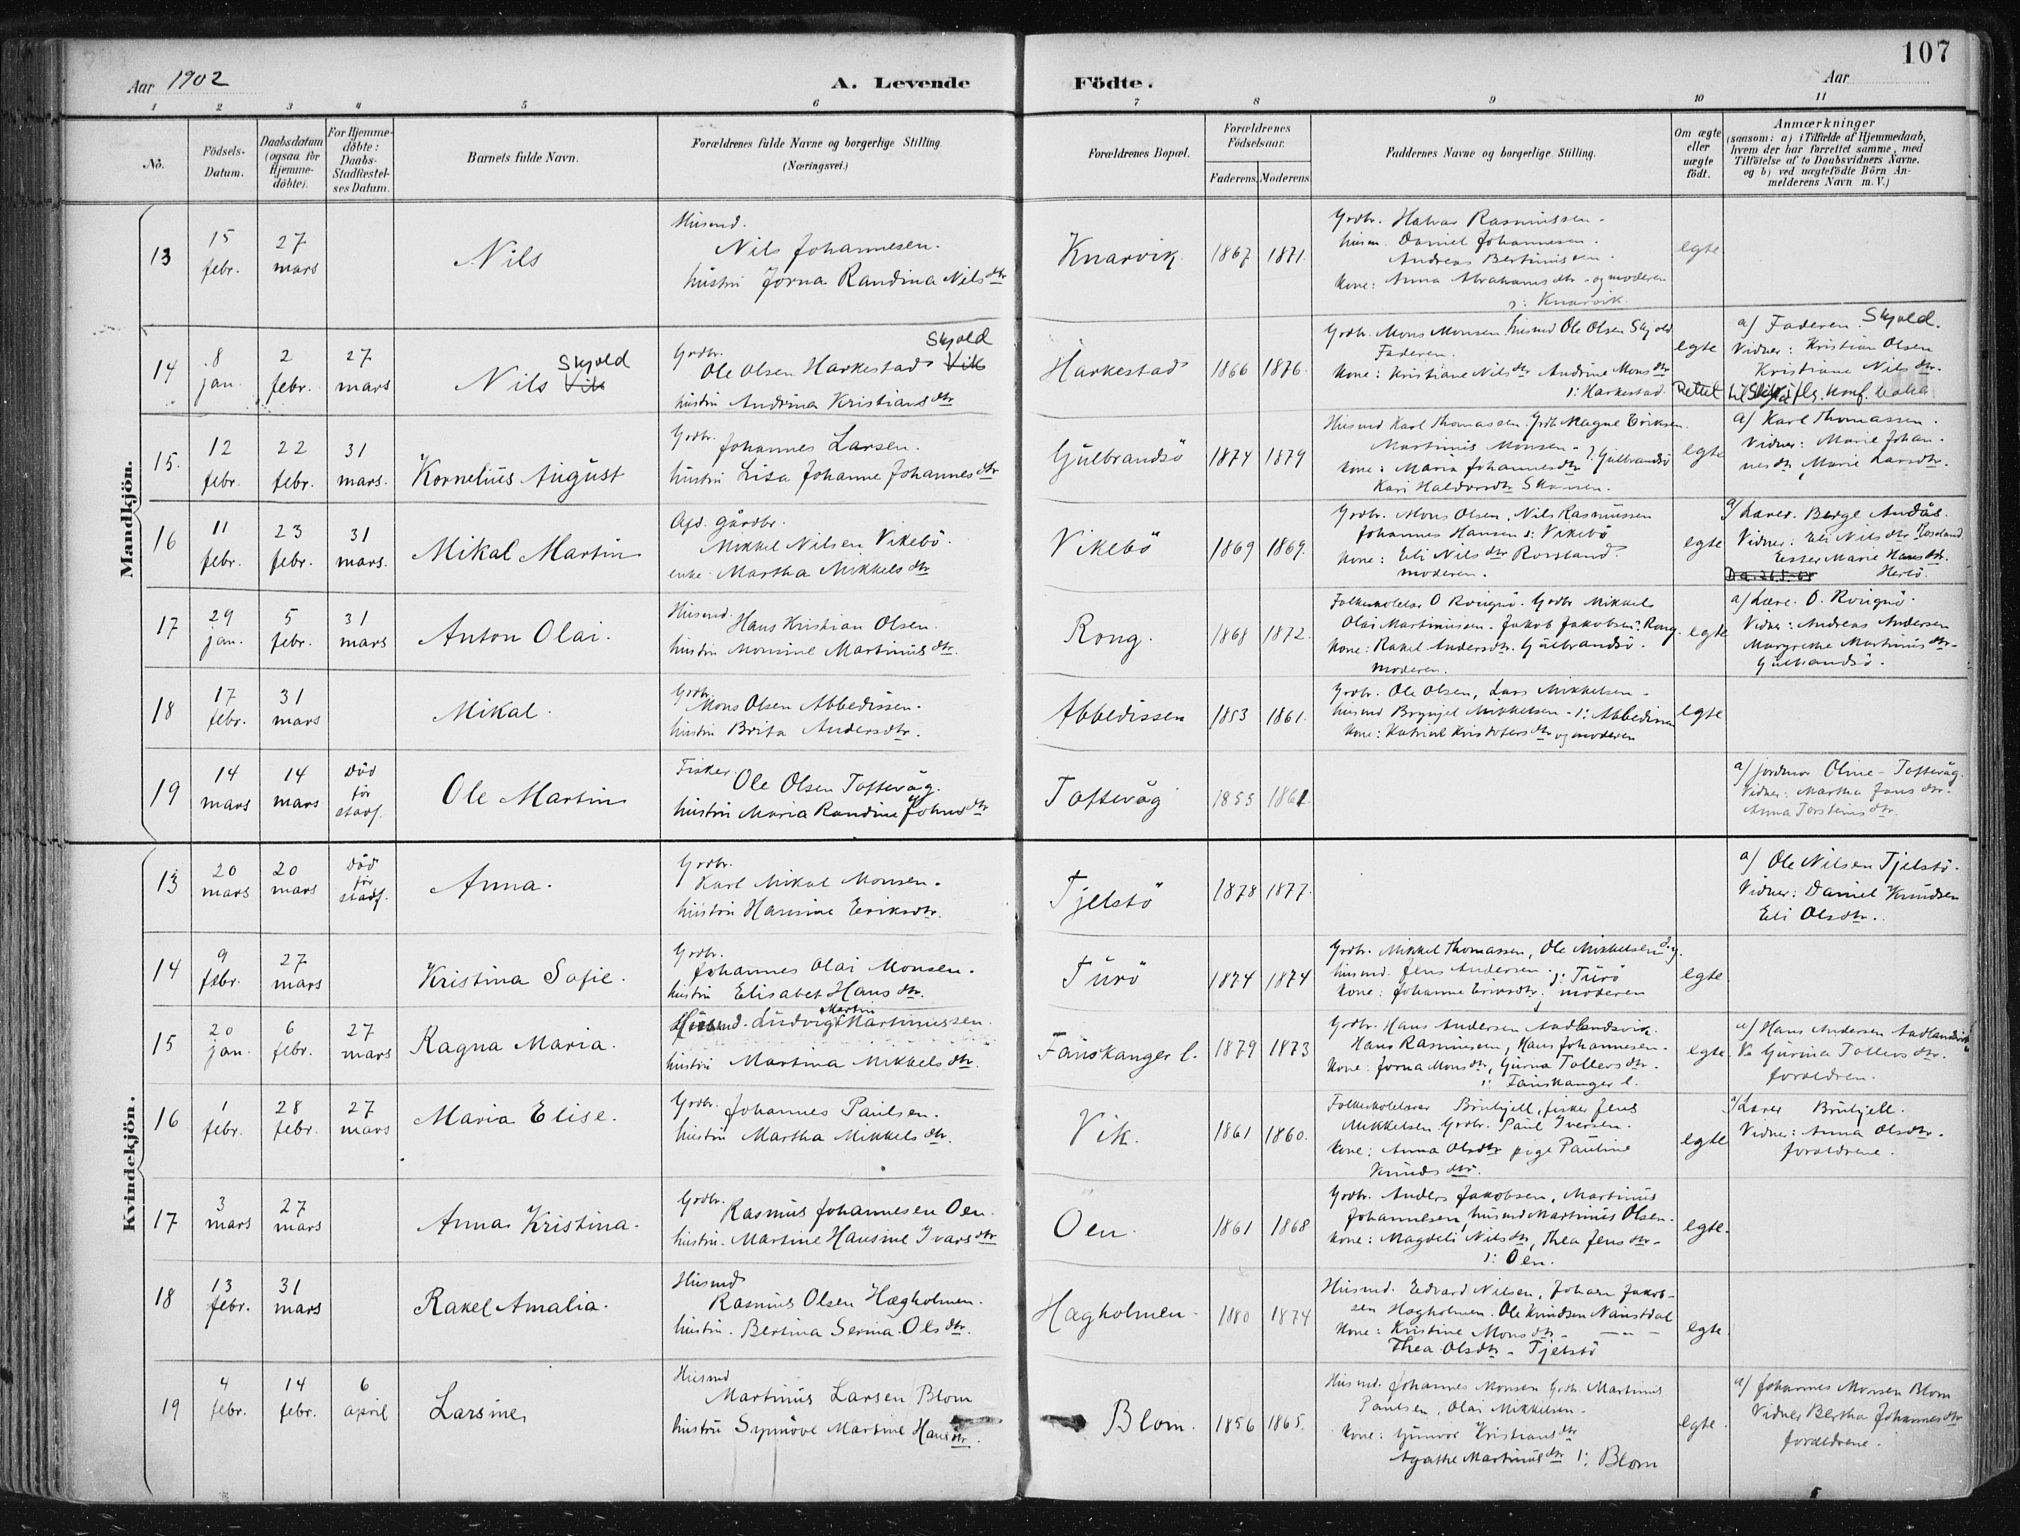 107
Aar 1902
A. Levende
Födte.
Aar
1 2 3 4 5 6 7 8 9 10 11
No.
Födsels-
Datum.
Daabsdatum
(ogsaa for
Hjemme-
döbte).
For Hjemme-
döbte:
Daabs-
Stadfæstel-
ses Datum.
Barnets fulde Navn.
Forældrenes fulde Navne og borgerlige Stilling
(Næringsvei.)
Forældrenes Bopæl.
Forældrenes
Födselsaar.
Faderens. Moderens.
Faddernes Navne og borgerlige Stilling.
Om ægte
eller
uægte
födt.
Anmærkninger
(saasom: a) i Tilfælde af Hjemmedaab,
hvem der har forrettet samme, med
Tilföielse af to Daabsvidners Navne.
og b) ved uægtefödte Börn An-
melderens Navn m. V.)
Mandkjön.
13
15
febr.
27
mars
Nils
Husmd.
Nils Johannesen.
hustru Jorna Randina Nilsdtr
Knarvik.
1867 1871.
Grdbr. Halvar Rasmussen -
husm. Daniel Johannesen.
Andreas Bertinussen
kone: Anna Abrahamsdtr - og moderen
ɔ: Knarvik.
egte
14
8
jan.
2
febr.
27
mars
Skjold
Nils Vik
Grdbr. Skjold
Ole Olsen Harkestad Vik
hustru Andrina Kristiansdtr
Harkestad
1866 1876.
Grdbr. Mons Monsen. husmd Ole Olsen Skjold
Faderen.
kone: Kristiane Nilsdtr Andrine Monsdtr
ɔ: Harkestad.
egte
a/ Faderen. Skjold.
Vidner: Kristian Olsen
Kristiane Nilsdtr.
Rettet til Skjold flg. konf.
15.
12
febr.
22
febr.
31
mars.
Kornelius August
Grdbr. Johannes Larsen.
hustru Lisa Johanne Johannesdtr
Gulbrandsö
1874 1879
Husmd Karl Thomassen. Grdb. Magne Eriksen
Martinus Monsen - ɔ: Gulbrandsö
kone: Maria Johannesdtr
Kari Haldorsdtr Skansen.
egte
a/ Karl Thomassen.
Vidner: Marie Johan-
nesdtr, Marie Larsdtr.
16
11
febr.
23
febr.
31
mars.
Mikal Martin
Agd. gårdbr.
Mikkel Nilsen Vikebö.
enke. Martha Mikkelsdtr
Vikebö
1869 1869.
Grdbr. Mons Olsen, Nils Rasmussen
Johannes Hansen ɔ: Vikebö
kone: Eli Nilsdtr Rossland.
moderen.
egte
a/ Lærer. Berge Andås.
Vidner: Eli Nilsdtr Rossland
Ester Marie Hansdtr.
Herlö.
17
29
jan.
5
febr.
31
mars
Anton Olai.
Husmd. Hans Kristian Olsen.
hustru Monsine Martinusdtr.
Rong.
1868 1872.
Folkeskolelær O Rongnö. Grdbr Mikkel
Olai Martinussen. Jakob Jakobsen ɔ: Rong.
kone: Rakel Andersdtr. Gulbrandsö.
moderen.
egte
a/ Lære. O. Rongnö.
Vidner: Andreas Andersen
Margrethe Martinusdtr -
Gulbrandsö.
18
17
febr.
31
mars
Mikal.
Grdbr.
Mons Olsen Abbedissen.
hustru Brita Andersdtr.
Abbedissen
1853 1861.
Grdbr. Ole Olsen, Lars Mikkelsen -
husmd Brynjel Mikkelsen - ɔ: Abbedissen
kone: Katrine Kristofersdtr og moderen
egte
19
14
mars
14
mars
Död
för
stadf.
Ole Martin
Fisker Ole Olsen Toftevåg.
hustru Maria Randine Johnsdtr
Toftevåg
1855 1861
a/ jordmor Oline - Toftevåg.
Vidner: Martha Jansdtr.
Anna Torstensdtr.
Kvindekjön.
13
20
mars
20
mars
Död
för
stadf.
Anna.
Grdbr.
Karl Mikal Monsen.
hustru Hansine Eriksdtr.
Tjelstö
1878 1877.
a/ Ole Nilsen Tjelstö.
Vidner: Daniel Knudsen
Eli Olsdtr.
14
9
febr.
27
mars
Kristina Sofie.
Grdbr.
Johannes Olai Monsen.
hustru Elisabet Hansdtr.
Turö
1874 1874
Grdbr. Mikkel Thomassen, Ole Mikkelsen
husmd. Jens Andersen. ɔ: Turö
kone: Johanne Eriksdtr. moderen
egte.
15
20
jan.
6
febr.
27
mars
Ragna Maria.
Husmd. Ludvig Martin Martinussen.
hustru Martina Mikkelsdtr.
Fanskanger l.
1879 1873
Grdbr. Hans Andersen Aadlandsvik.
Hans Rasmussen, Hans Johannesen.
kone: Jorna Monsdtr, Gurina Tollevsdtr.
ɔ: Fanskanger l.
egte.
a/ Hans Andersen Aadlandsvik
V: Gurina Tollevsdtr.
foreldren.
16
1
febr.
28
febr.
27
mars
Maria Elise.
Grdbr. Johannes Paulsen.
hustru Martha Mikkelsdtr.
Vik.
1861 1860.
Folkeskolelærer Brubjell, fisker Jens
Mikkelsen. Grdbr. Paul Iversen.
kone: Anna Olsdtr pige Pauline
Knudsdtr.
egte
a/ Lærer Brubjell.
Vidner: Anna Olsdtr.
foreldrene.
17
3
mars
27
mars
Anna Kristina.
Grdbr.
Rasmus Johannesen Oen.
hustru. Martine Hansine Ivarsdtr
Oen
1861 1868
Grdbr. Anders Jakobsen, Martinus
Johannesen, husmd Martinus Olsen.
kone: Magdeli Nilsdtr, Thea Jensdtr -
ɔ: Oen.
egte.
18
13
febr.
31
mars
Rakel Amalia.
Husmd
Rasmus Olsen Hægholmen.
hustru. Bertina Serina Olsdtr.
Hægholmen.
1880 1874
Husmd. Edvard Nilsen, Johan Jakob-
sen Hagholmen. Ole Knudsen Naustdal
kone: Kristine Monsdtr - — " —
Thea Olsdtr - Tjelstö
egte.
19
4
febr.
14
febr.
6
april
Larsine
Husmd
Martinus Larsen Blom
hustru Synnöve Martine Hansdtr.
Blom.
1856 1865.
Husmd. Johannes Monsen Grdb. Martinus
Paulsen, Olai Mikkelsen.
kone: Gunvor Kristiansdtr
Agathe Martinusdtr ɔ: Blom
egte.
a/ Johannes Monsen Blom
Vidner Bertha Johannesdtr
foreldrene.